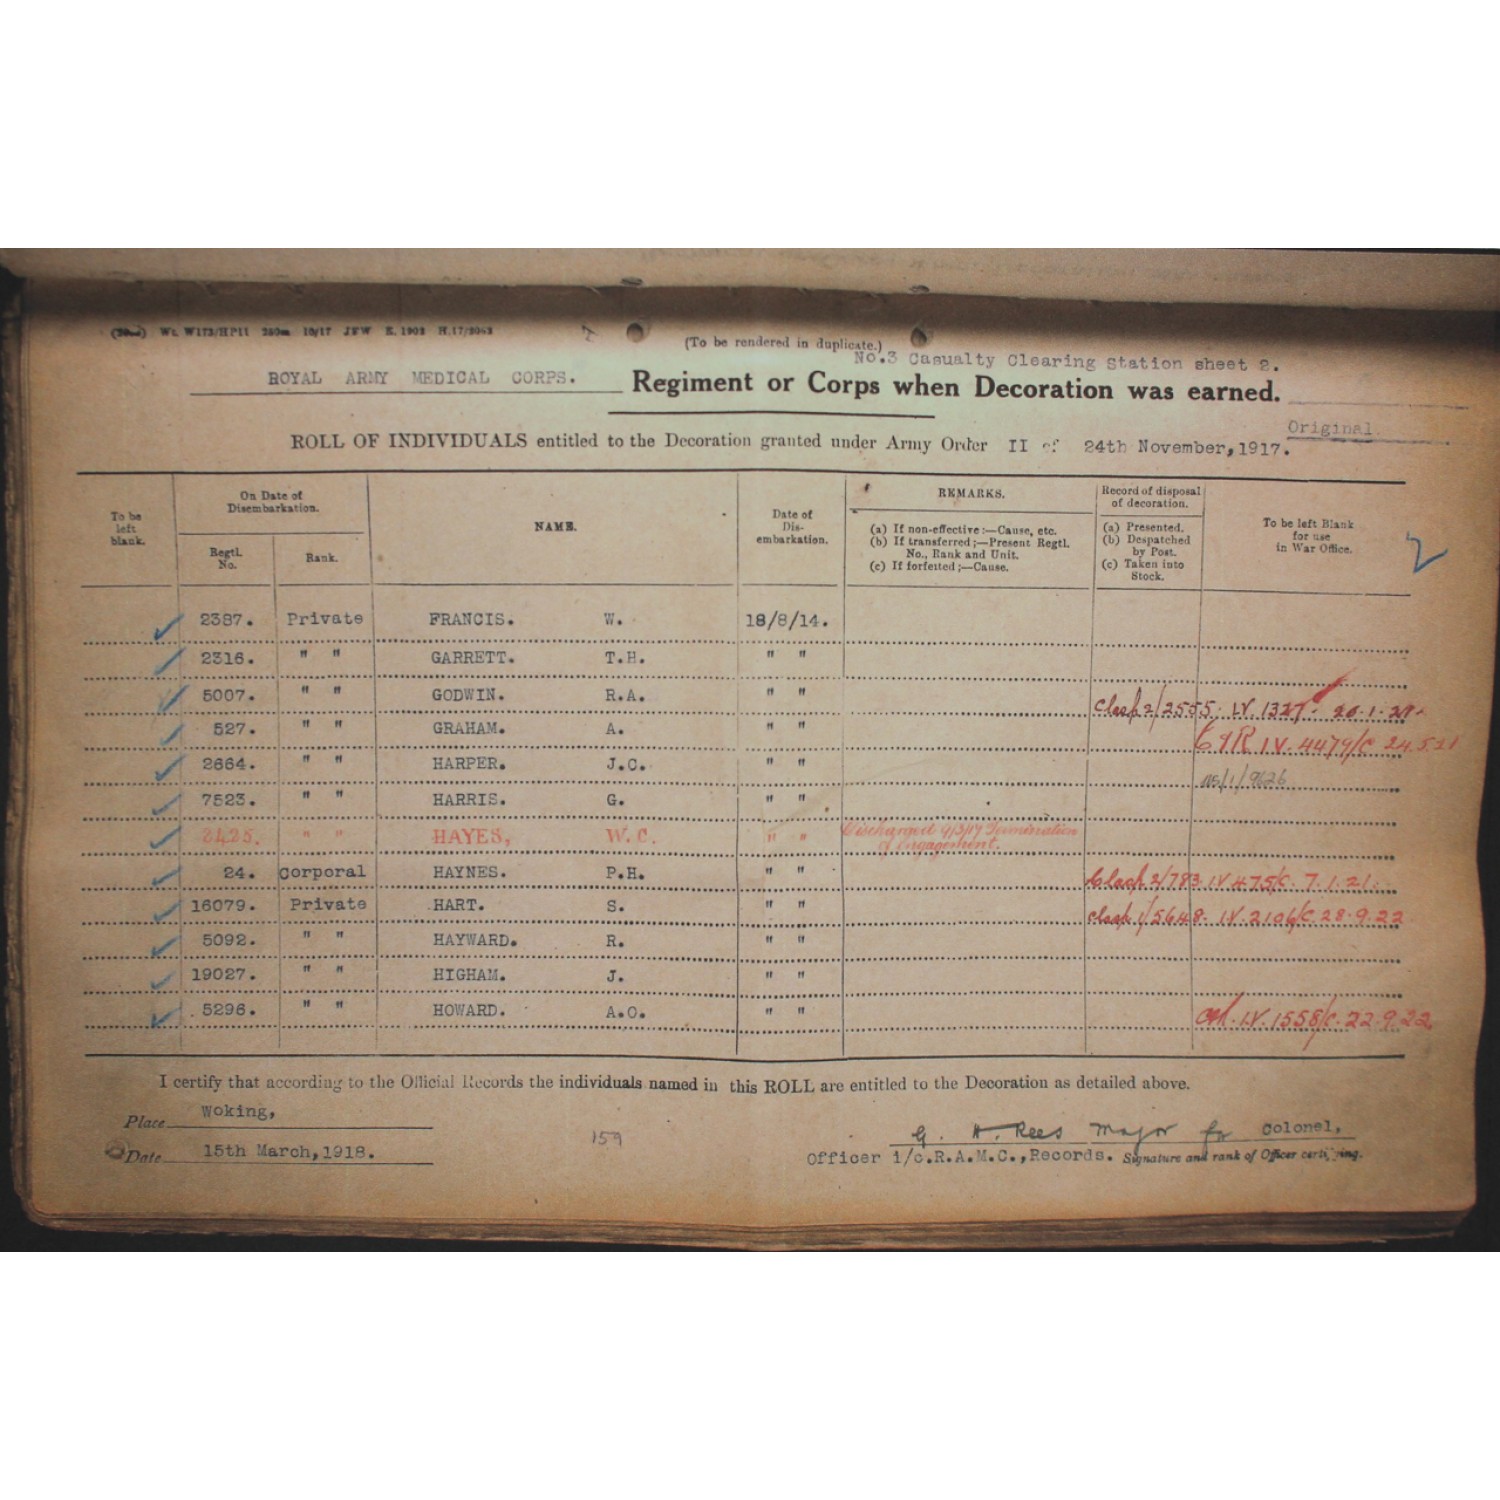 Wt. W173/HP11 250m 10/17 JFW E. 1902 H.17/2063
(To be rendered in duplicate.)
No.3 Casualty Clearing Station sheet 2.
ROYAL ARMY MEDICAL CORPS. Regiment or Corps when Decoration was earned.
Original.
ROLL OF INDIVIDUALS entitled to the Decoration granted under Army Order II of 24th November, 1917.
To be left blank.
On Date of Disembarkation.
Regtl. No.
Rank.
NAME.
Date of Dis-embarkation.
REMARKS.
(a) If non-effective:—Cause, etc.
(b) If transferred;—Present Regtl. No., Rank and Unit.
(c) If forfeited;—Cause.
Record of disposal of decoration.
(a) Presented.
(b) Despatched by Post.
(c) Taken into Stock.
To be left Blank for use in War Office.
2
2387. Private FRANCIS. W. 18/8/14.
2316. " " GARRETT. T.H. " "
5007. " " GODWIN. R.A. " " Clasp 2/2555. IV. 1327 20.1.21
527. " " GRAHAM. A. " " IV. 4479/C 24.5.21
2664. " " HARPER. J.C. " " /1/9626
7523. " " HARRIS. G. " "
2425. " " HAYES, W.C. " " Discharged 9/3/17 Termination of Engagement.
24. Corporal HAYNES. P.H. " " Clasp 2/783 IV 475/C. 7.1.21.
16079. Private HART. S. " " Clasp 1/5648. IV. 2106/C. 28.9.22
5092. " " HAYWARD. R. " "
19027. " " HIGHAM. J. " "
5296. " " HOWARD. A.O. " " IV. 1558/C. 22.9.22.
I certify that according to the Official Records the individuals named in this ROLL are entitled to the Decoration as detailed above.
Place Woking,
159
G. H. Rees Major for Colonel,
Date 15th March, 1918.
Officer i/c.R.A.M.C., Records. Signature and rank of Officer certifying.